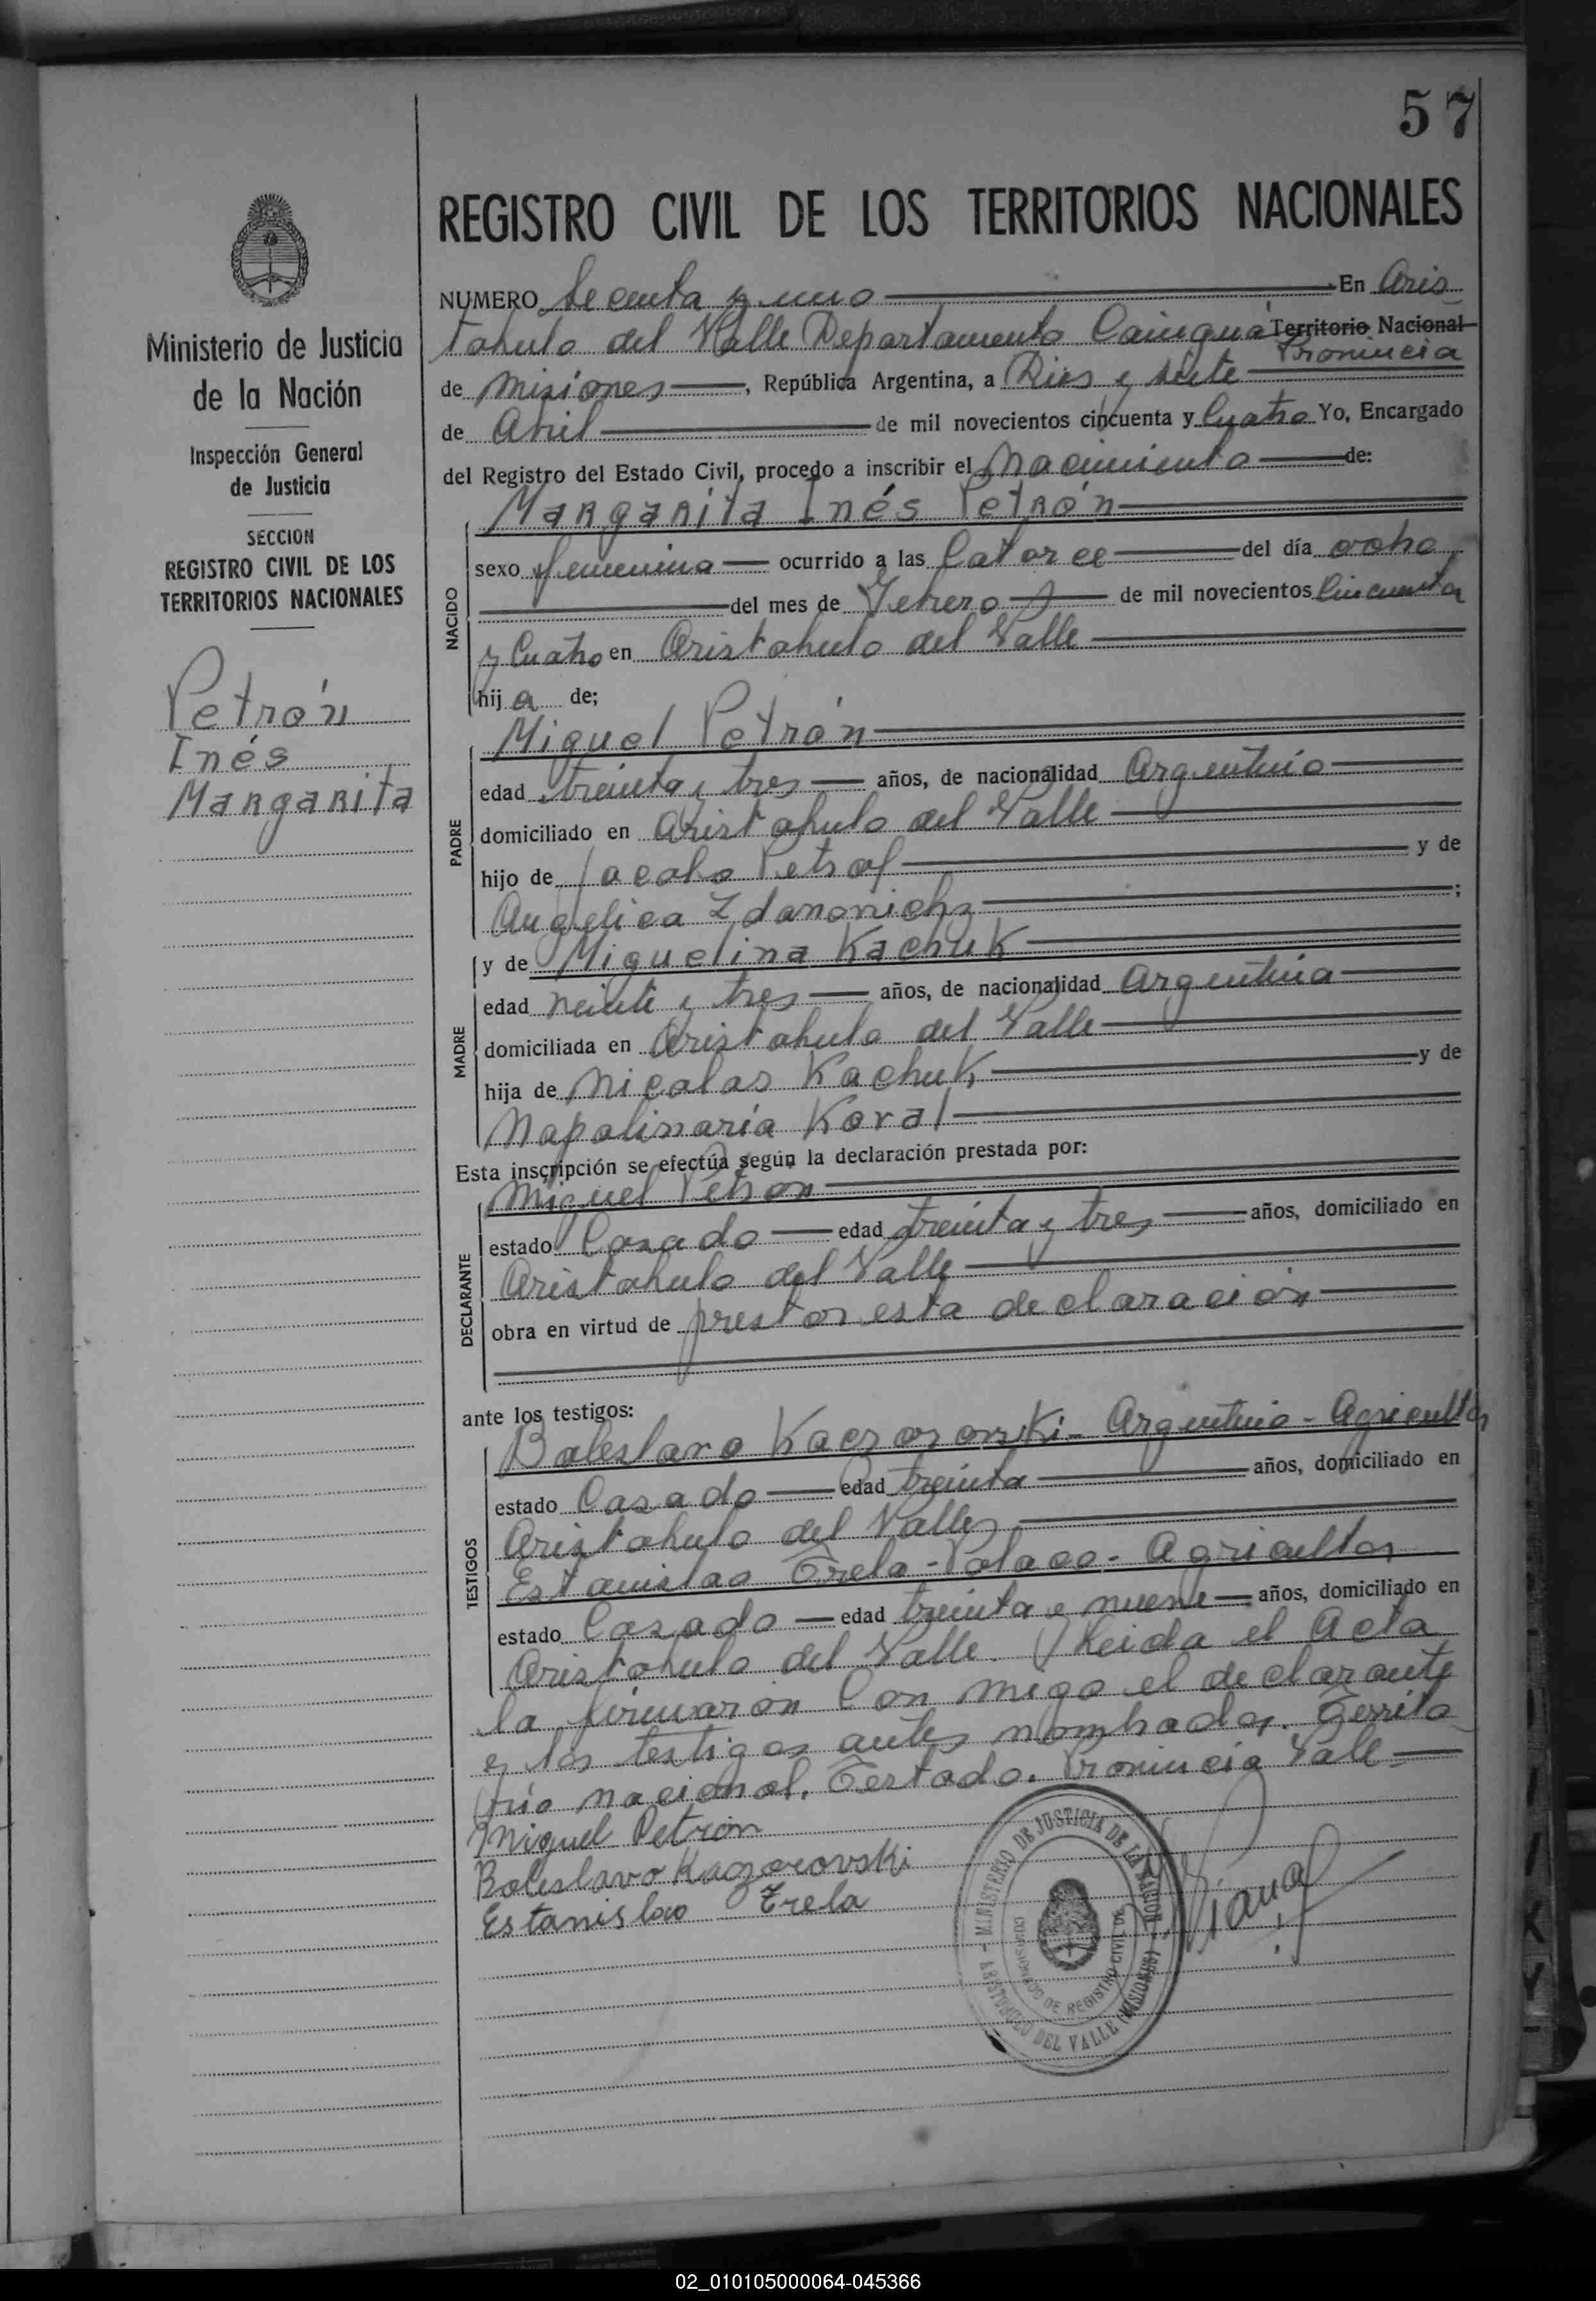 57
REGISTRO CIVIL DE LOS TERRITORIOS NACIONALES
Ministerio de Justicia
de la Nación
Inspección General
de Justicia
SECCION
REGISTRO CIVIL DE LOS
TERRITORIOS NACIONALES
Petrón
Inés
Margarita
NUMERO Secenta y uno En Aris
tobulo del Valle Departamento Cainguá Territorio Nacional
Provincia
de Misiones, República Argentina, a Dies y siete
de Abril de mil novecientos cincuenta y Cuatro Yo, Encargado
del Registro del Estado Civil, procedo a inscribir el Nacimiento de:
NACIDO
Margarita Inés Petrón
sexo femenino ocurrido a las Catorce del día ocho
del mes de Febrero de mil novecientos Cincuenta
y Cuatro en Aristobulo del Valle
hija de;
PADRE
Miguel Petrón
edad treinta y tres años, de nacionalidad Argentino
domiciliado en Aristobulo del Valle
hijo de Jacobo Petrof y de
Angelica Zdanovichz;
MADRE
y de Miguelina Kachuk
edad veinte y tres años, de nacionalidad Argentina
domiciliada en Aristobulo del Valle
hija de Nicolas Kachuk y de
Napolinaria Koval
Esta inscripción se efectúa según la declaración prestada por:
DECLARANTE
Miguel Petron
estado Casado edad treinta y tres años, domiciliado en
Aristobulo del Valle
obra en virtud de prestar esta declaración
ante los testigos:
TESTIGOS
Boleslavo Kaczorovski - Argentino - Agricultor
estado Casado edad treinta años, domiciliado en
Aristobulo del Valle
Estanislao Trela - Polaco - Agricultor
estado Casado edad treinta y nueve años, domiciliado en
Aristobulo del Valle. Leida el Acta
la firmaron Con migo el declarante
y los testigos antes nombrados. Territo
rio nacional. Testado. Provincia Vale
Miguel Petron
Boleslavo Kaczorovski
Estanislao Trela
MINISTERIO DE JUSTICIA DE LA NACION
ARISTOBULO DEL VALLE (MISIONES)
DE REGISTRO CIVIL
02_010105000064-045366